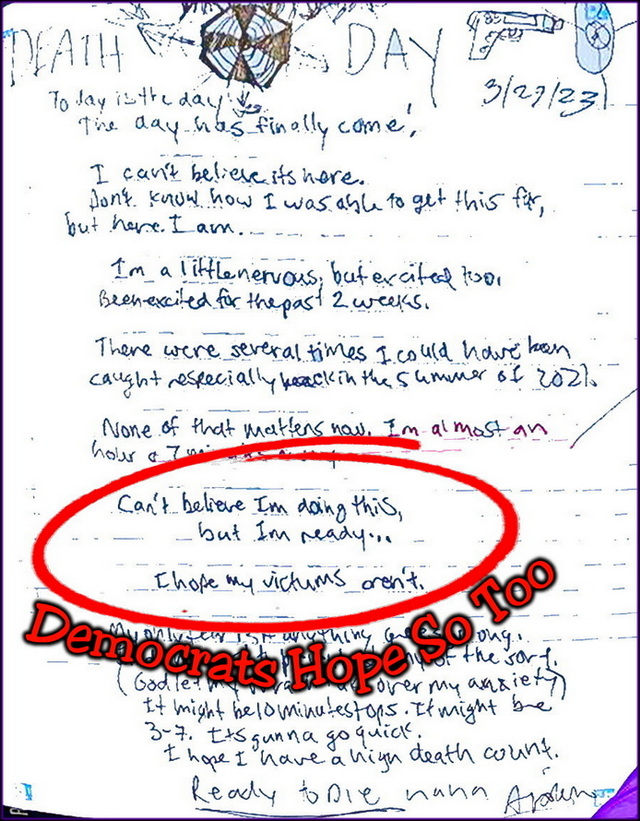 DEATH DAY
3/27/23
Today is the day
The day has finally come!
I can't believe its here.
Don't know how I was able to get this far,
but here I am.
I'm a little nervous, but excited too.
Been excited for the past 2 weeks.
There were several times I could have been
caught especially back in the summer of 2021.
None of that matters now. I'm almost an
hour & 7 minutes away
Can't believe Im doing this,
but Im ready...
I hope my victums aren't.
Democrats Hope So Too
My only fear is if anything goes wrong.
of the sort.
(God let my over my anxiety)
It might be 10 minutes tops. It might be
3-7. Its gunna go quick.
I hope I have a high death count.
Ready to Die haha